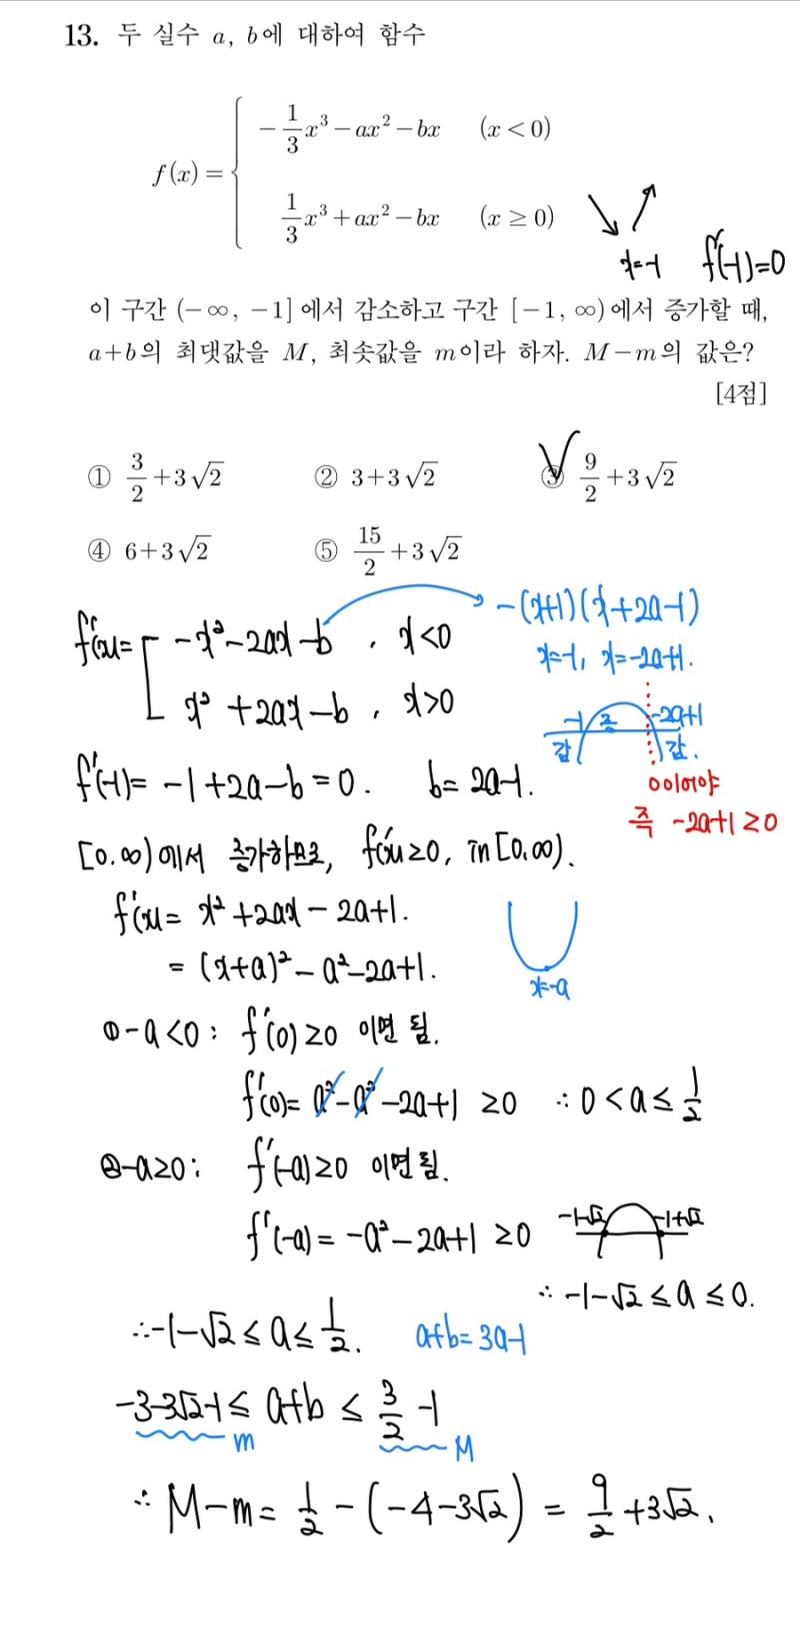 13. 두 실수 a, b에 대하여 함수
f(x) = { -1/3 x³ - ax² - bx (x < 0)
1/3 x³ + ax² - bx (x ≥ 0)
x=-1 f'(-1)=0
이 구간 (-∞, -1]에서 감소하고 구간 [-1, ∞)에서 증가할 때,
a+b의 최댓값을 M, 최솟값을 m이라 하자. M-m의 값은?
[4점]
① 3/2 + 3√2 ② 3+3√2 ③ 9/2 + 3√2
④ 6+3√2 ⑤ 15/2 + 3√2
f'(x)= [ -x²-2ax-b , x<0
x²+2ax-b , x>0
-(x+1)(x+2a-1)
x=-1, x=-2a+1.
-1 증 -2a+1
감 감.
0이어야
즉 -2a+1≥0
f'(-1)= -1+2a-b=0. b=2a-1.
[0.∞)에서 증가하므로, f'(x)≥0, in [0,∞).
f'(x)= x²+2ax-2a+1.
= (x+a)²-a²-2a+1.
x=-a
①-a<0: f'(0)≥0 이면 됨.
f'(0)= a²-a²-2a+1 ≥0 ∴ 0<a≤1/2
②-a≥0: f'(-a)≥0 이면 됨.
f'(-a)= -a²-2a+1 ≥0 -1-√2 -1+√2
∴ -1-√2 ≤ a ≤ 0.
∴ -1-√2 ≤ a ≤ 1/2. a+b=3a-1
-3-3√2-1 ≤ a+b ≤ 3/2 -1
m M
∴ M-m= 1/2 - (-4-3√2) = 9/2 +3√2.